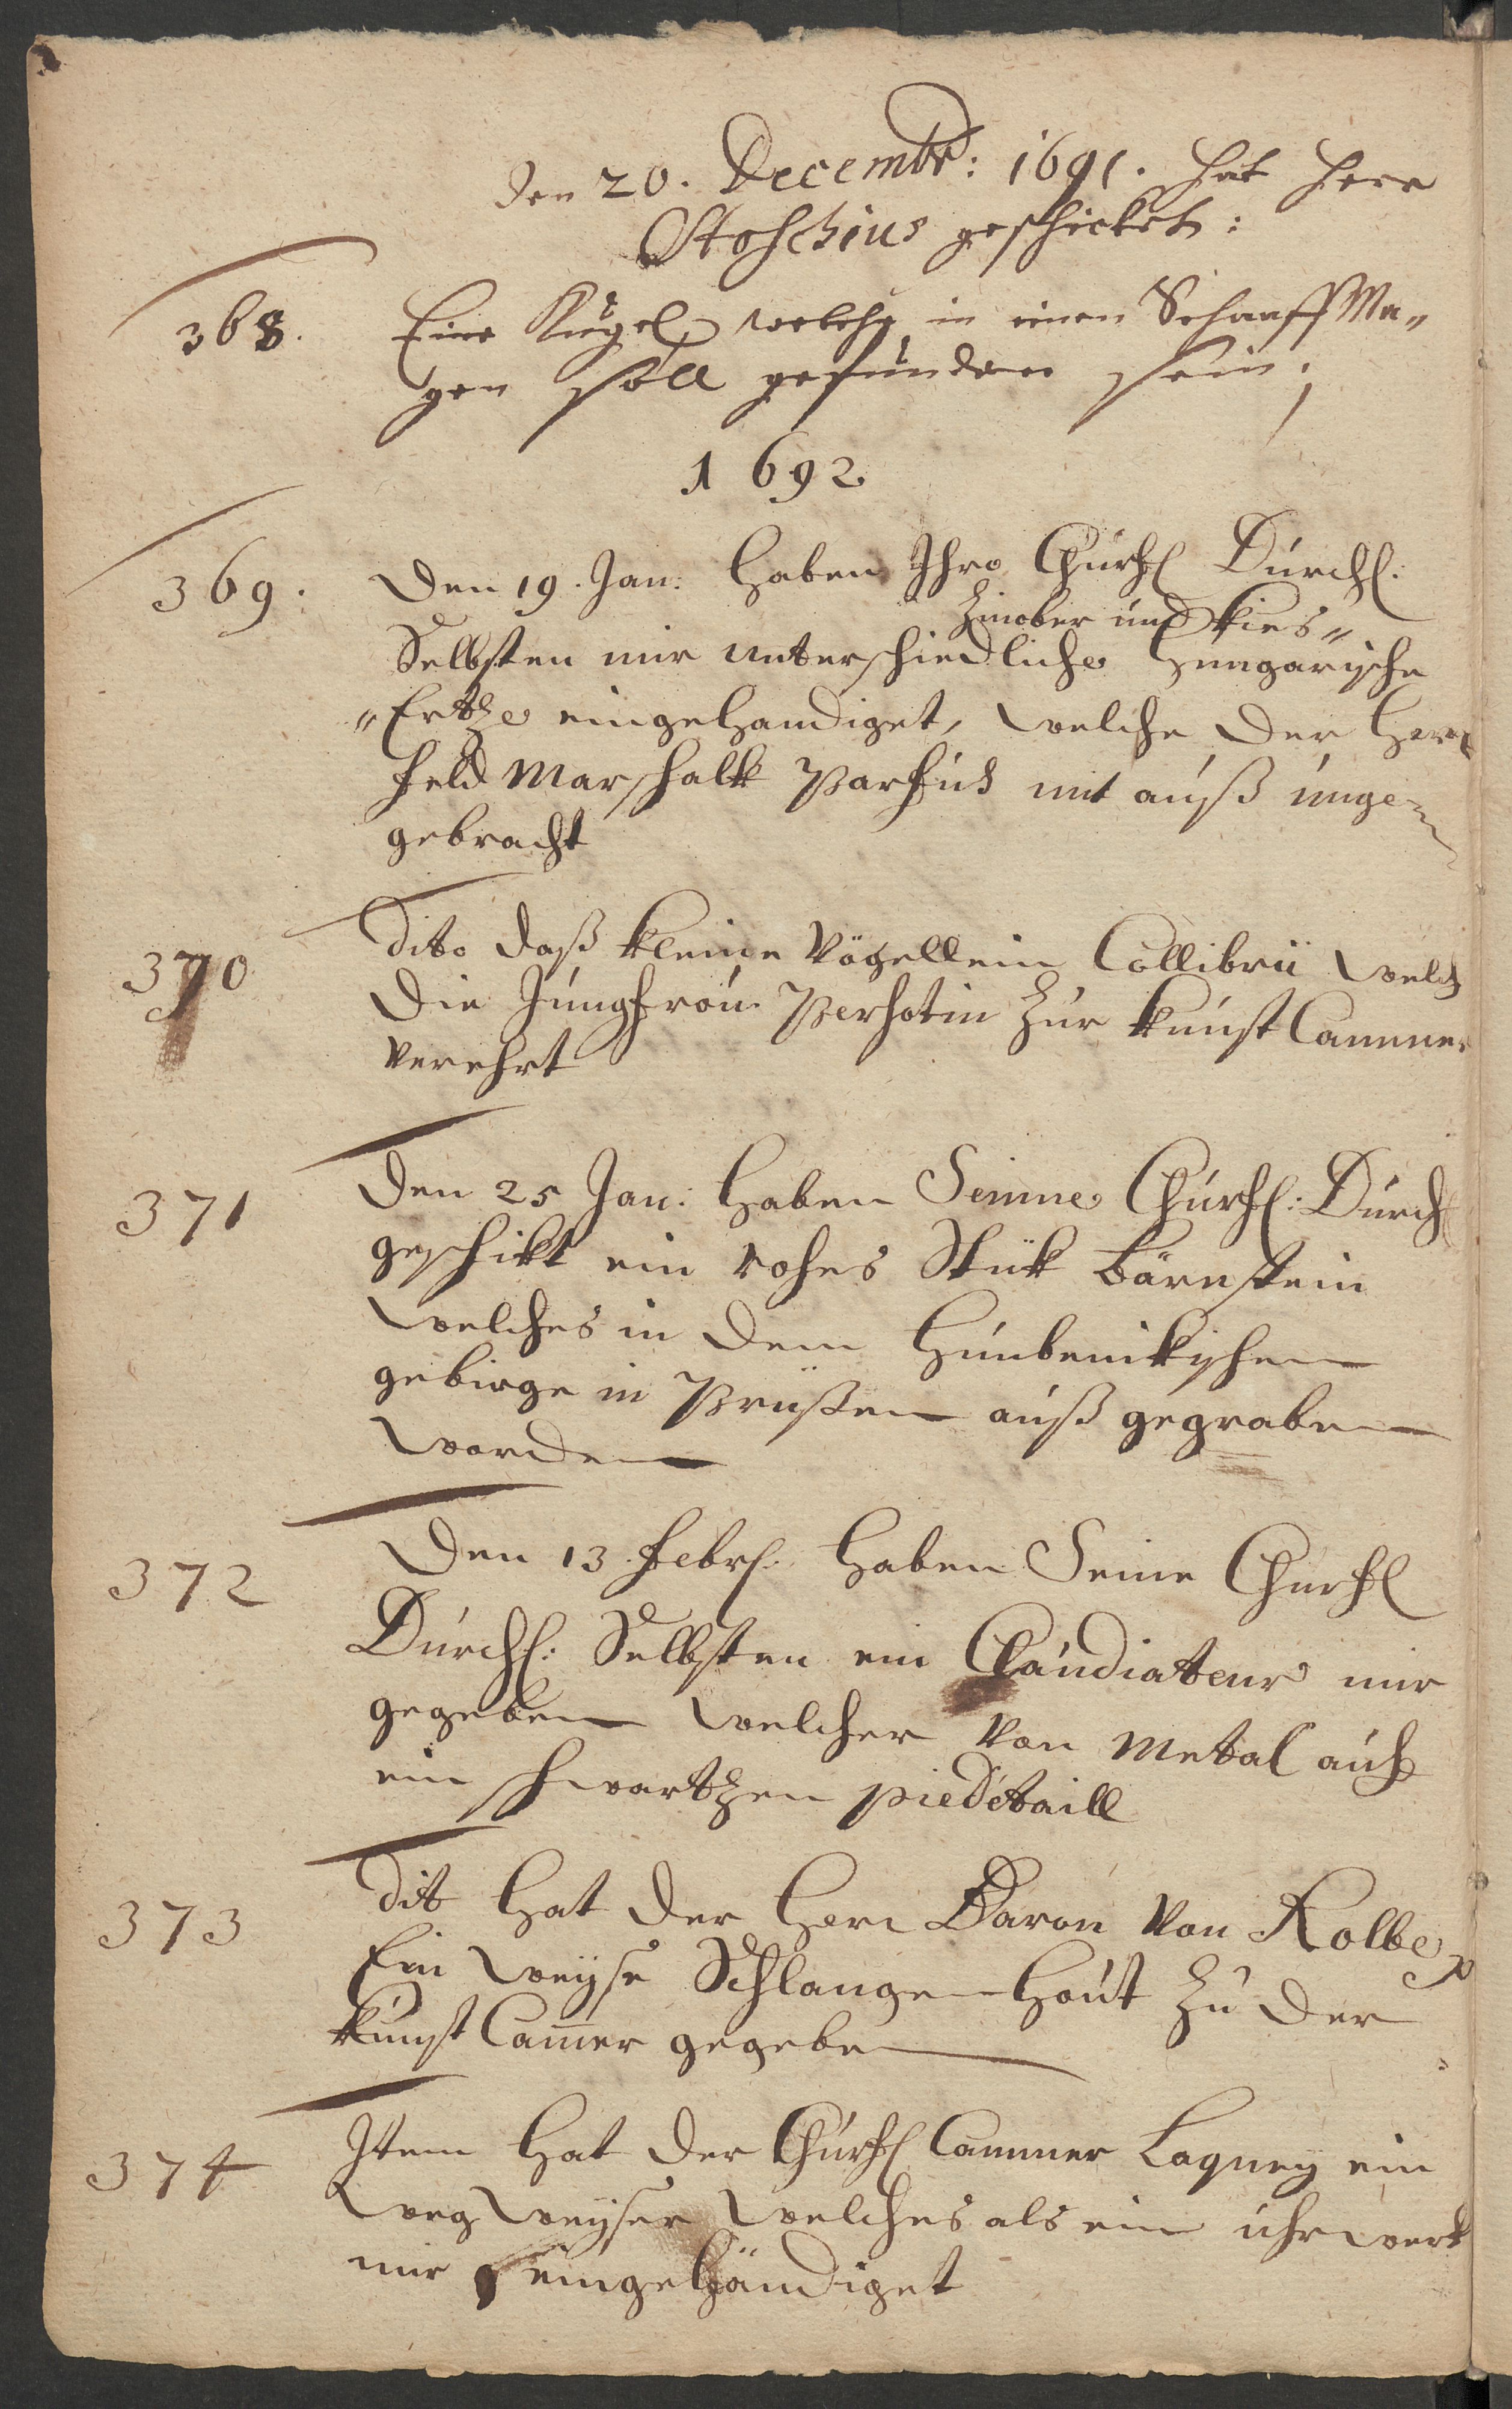 Den 20. Decembr: 1691. hat Herr
Stoschius geschicket:
368. Eine Kugel, welche in einen SchaaffMa„
gen soll gefunden sein;
1692.
369. Den 19. Jan: haben Ihro Churfl Durchl:
Zinober und Kies„
Selbsten mir unterschiedliche Hungarische
„Ertze eingehandiget, welche der Herr
Feld Marschalk Parfus mit auß unge
gebracht
370 Dito daß kleine Vögellein Collibrii welch
die Jungfrou Perhotin zur Kunst Cammer
verehrt
371 Den 25 Jan: haben Seinne Churfl: Durchl
geschikt ein rohes Stük Bärnstein
welches in dem Hunbenikischen
gebirge in Prüßen auß gegraben
worden
372 Den 13 Febr. haben Seine Churfl
Durchl: Selbsten ein Claudiateur mir
gegeben welcher von Metal auf
ein schwartzen piedetaill
373 Dit hat der Herr Baron von Kolbe
Ein weyse Schlangen Hout zu der
Kunst Camer gegeben
374 Item hat der Churfl Cammer Laquey ein
Weg Weyser welches als ein uhrwerk
mir eingehändiget